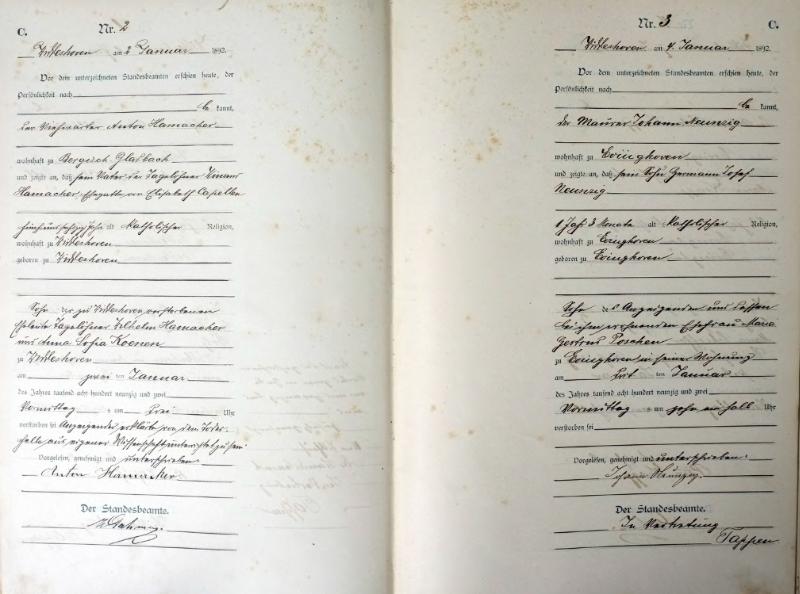 C. Nr. 2
am 2 Januar 1892.
Vor dem unterzeichneten Standesbeamten erschien heute, der
Persönlichkeit nach
be kannt,
der Anton Hamacher
wohnhaft zu Bergisch Gladbach
und zeigte an, daß sein Vater der Tagelöhner
Hamacher Ehegatte von Elisabeth Capellen
alt katholischer Religion,
wohnhaft zu
geboren zu
Sohn der zu verstorbenen
Eheleute Tagelöhner Wilhelm Hamacher
und Anna Sofia Koenen
zu
am zwei ten Januar
des Jahres tausend acht hundert neunzig und zwei
Vormittags um drei Uhr
verstorben sei Anzeigender erklärt von dem Todes-
falle aus eigener Wissenschaft unterrichtet zu sein.
Vorgelesen, genehmigt und unterschrieben.
Anton Hamacher
Der Standesbeamte.
Nr. 3 C.
am 4. Januar 1892
Vor dem unterzeichneten Standesbeamten erschien heute, der
Persönlichkeit nach
be kannt,
der Maurer Johann Neunzig
wohnhaft zu Evinghoven
und zeigte an, daß sein Sohn Hermann Josef
Neunzig
1 Jahr 3 Monate alt katholischer Religion,
wohnhaft zu Evinghoven
geboren zu Evinghoven
Sohn des Anzeigenden und dessen
bei ihm wohnenden Ehefrau Maria
Gertrud Poschen
zu Evinghoven in seiner Wohnung
am ten Januar
des Jahres tausend acht hundert neunzig und zwei
Vormittag s um zehn ein halb Uhr
verstorben sei
Vorgelesen, genehmigt und unterschrieben.
Johann Neunzig.
Der Standesbeamte.
In Vertretung
Tappen